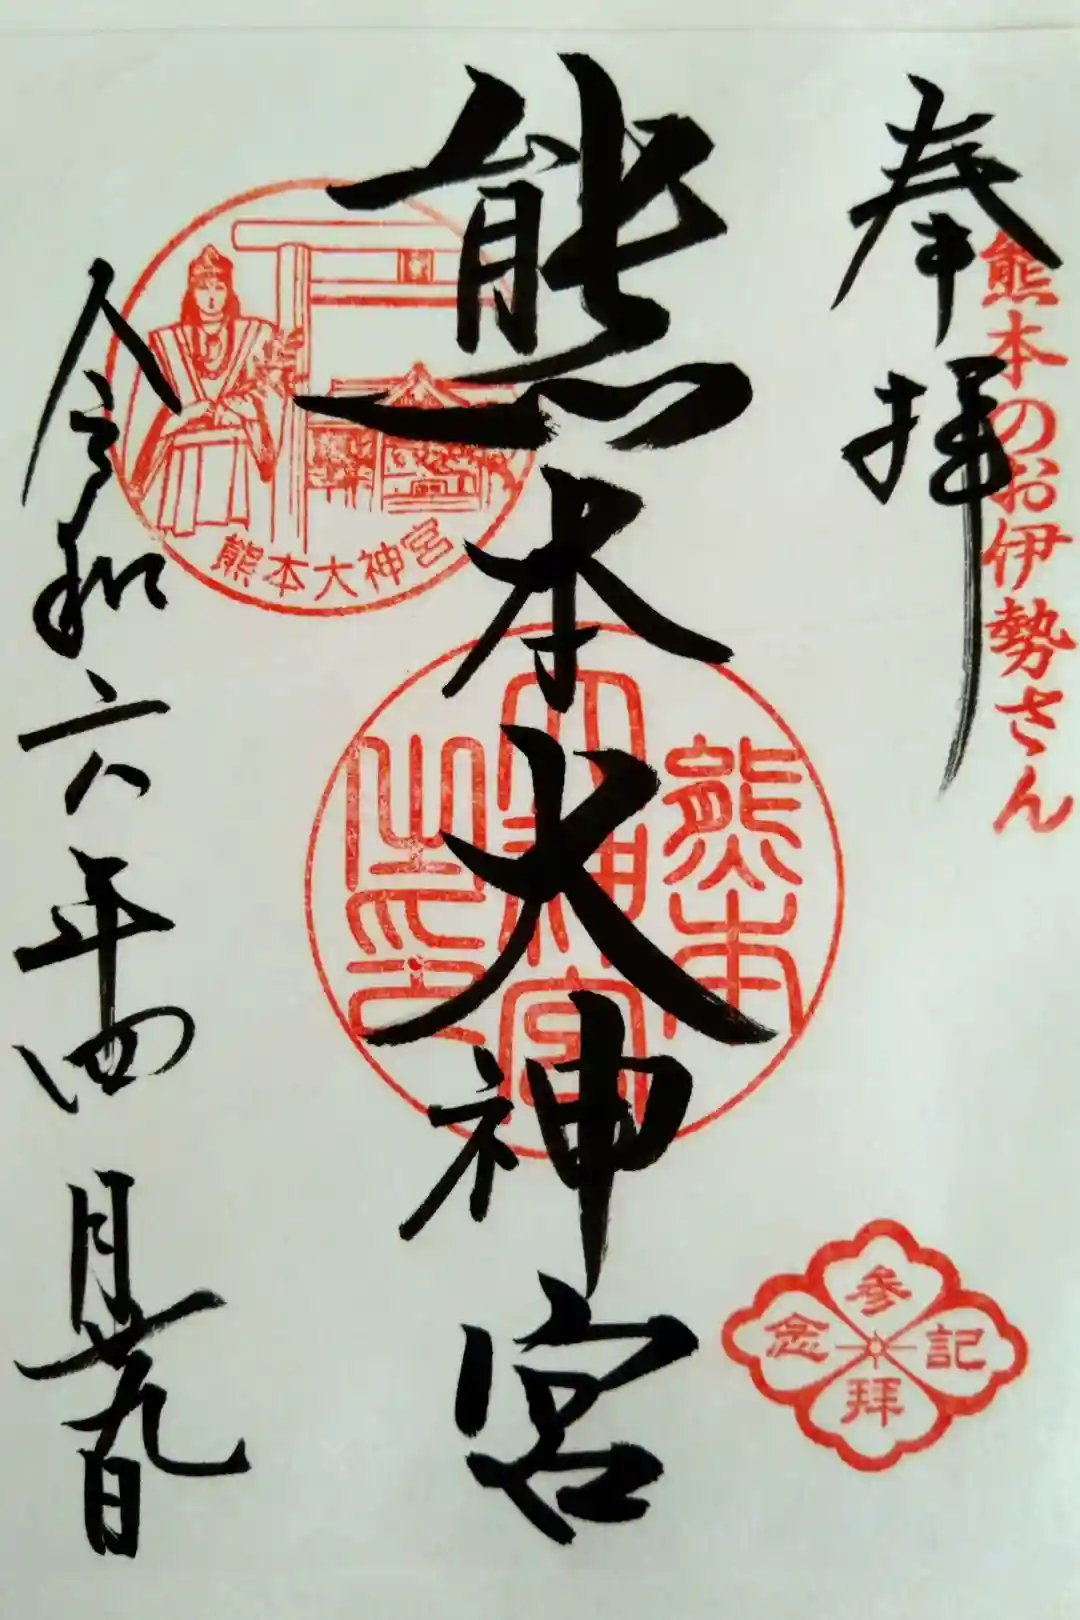 奉拝
熊本のお伊勢さん
熊本大神宮
熊本大神宮
熊本
大神宮
之印
参拝記念
令和六年四月九日